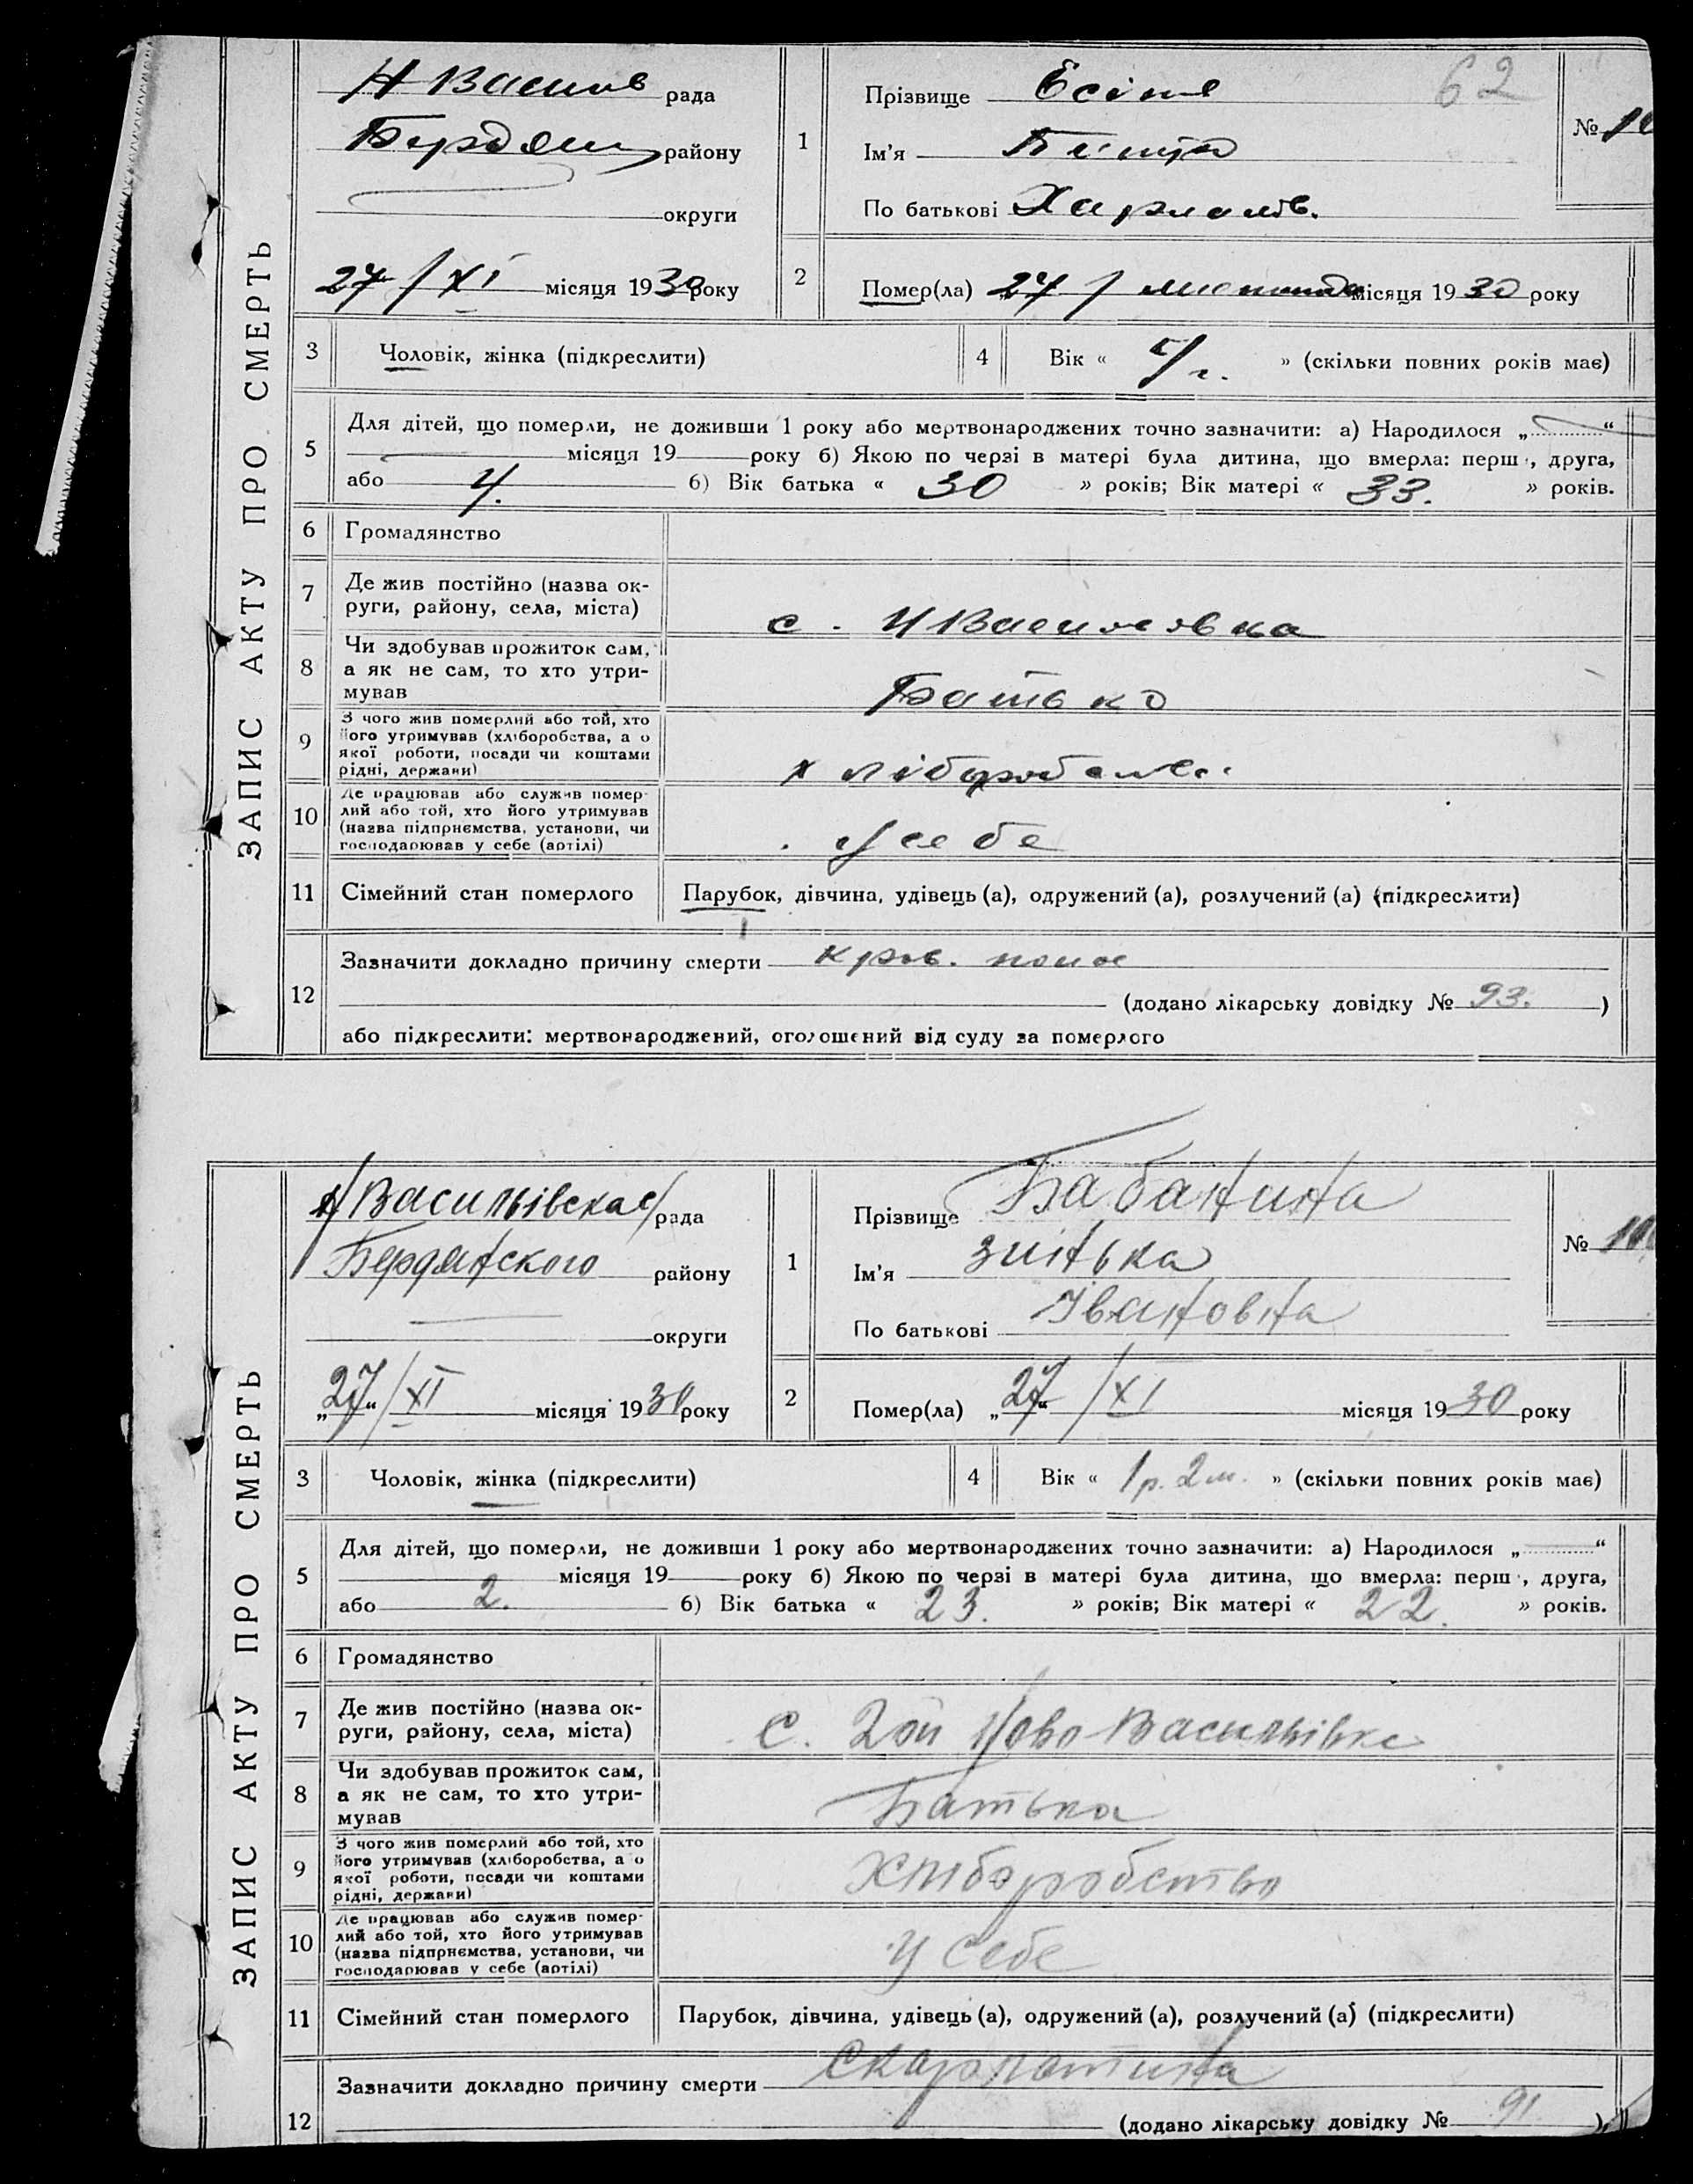 62
ЗАПИС АКТУ ПРО СМЕРТЬ
Н Васил рада
Бердян району
округи
27/XI місяця 1930 року
1
Прізвище Єсіпов
Ім'я
По батькові Харламів.
№
2
Помер(ла) 27/листопада місяця 1930 року
3 Чоловік, жінка (підкреслити)
4 Вік « » (скільки повних років має)
5 Для дітей, що померли, не доживши 1 року або мертвонароджених точно зазначити: а) Народилося „ “
місяця 19 року б) Якою по черзі в матері була дитина, що вмерла: перш , друга,
або 4. б) Вік батька « 30 » років; Вік матері « 33. » років.
6 Громадянство
7 Де жив постійно (назва ок-
руги, району, села, міста)
с. Н Василівка
8 Чи здобував прожиток сам,
а як не сам, то хто утри-
мував
Батько
9 З чого жив померлий або той, хто
його утримував (хліборобства, а о
якої роботи, посади чи коштами
рідні, держави)
хліборобст
10 Де працював або служив помер-
лий або той, хто його утримував
(назва підприємства, установи, чи
господарював у себе (артілі)
У себе
11 Сімейний стан померлого Парубок, дівчина, удівець (а), одружений (а), розлучений (а) (підкреслити)
12 Зазначити докладно причину смерти кров. понос
(додано лікарську довідку № 93. )
або підкреслити: мертвонароджений, оголошений від суду за померлого
ЗАПИС АКТУ ПРО СМЕРТЬ
Н/Васильівская рада
Бердянского району
округи
„27“/XI місяця 1930 року
1
Прізвище Бабанина
Ім'я Зинька
По батькові Івановна
№
2
Помер(ла) „27“/XI місяця 1930 року
3 Чоловік, жінка (підкреслити)
4 Вік « 1р. 2м. » (скільки повних років має)
5 Для дітей, що померли, не доживши 1 року або мертвонароджених точно зазначити: а) Народилося „ “
місяця 19 року б) Якою по черзі в матері була дитина, що вмерла: перш , друга,
або 2. б) Вік батька « 23. » років; Вік матері « 22. » років.
6 Громадянство
7 Де жив постійно (назва ок-
руги, району, села, міста)
с. 2ой Ново-Васильівке
8 Чи здобував прожиток сам,
а як не сам, то хто утри-
мував
Батька
9 З чого жив померлий або той, хто
його утримував (хліборобства, а о
якої роботи, посади чи коштами
рідні, держави)
Хліборобство
10 Де працював або служив помер-
лий або той, хто його утримував
(назва підприємства, установи, чи
господарював у себе (артілі)
У себе
11 Сімейний стан померлого Парубок, дівчина, удівець (а), одружений (а), розлучений (а) (підкреслити)
12 Зазначити докладно причину смерти Скарлатина
(додано лікарську довідку № 91 )